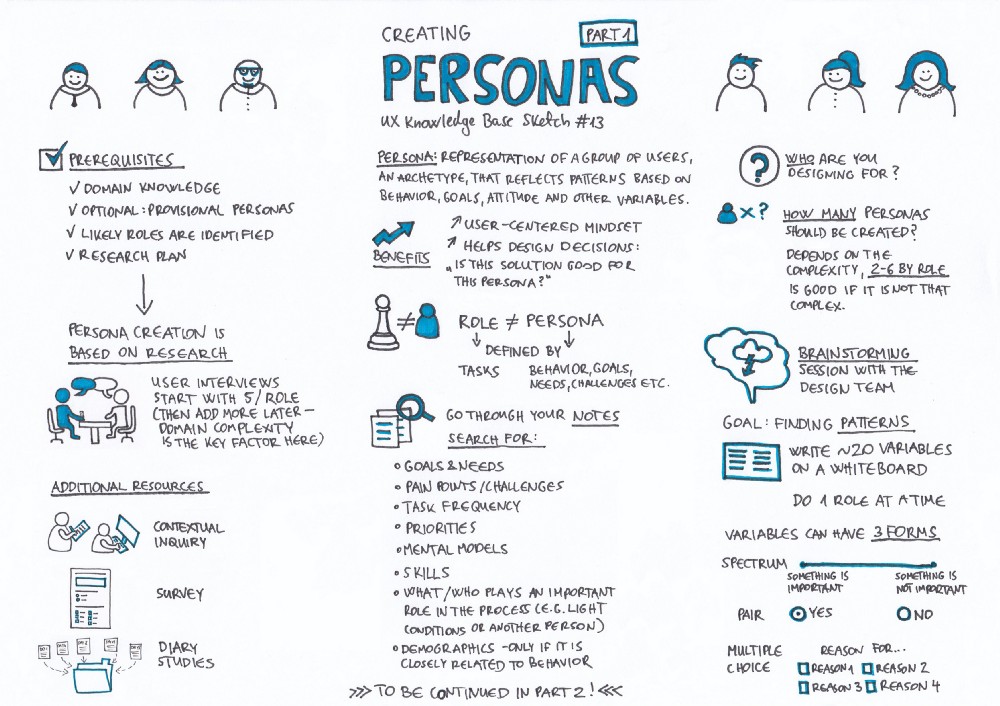 CREATING
PART 1
PERSONAS
UX Knowledge Base Sketch #13
PREREQUISITES
√ DOMAIN KNOWLEDGE
√ OPTIONAL: PROVISIONAL PERSONAS
√ LIKELY ROLES ARE IDENTIFIED
√ RESEARCH PLAN
PERSONA CREATION IS
BASED ON RESEARCH
USER INTERVIEWS
START WITH 5/ROLE
(THEN ADD MORE LATER –
DOMAIN COMPLEXITY
IS THE KEY FACTOR HERE)
ADDITIONAL RESOURCES
CONTEXTUAL
INQUIRY
SURVEY
DIARY
STUDIES
PERSONA: REPRESENTATION OF A GROUP OF USERS,
AN ARCHETYPE, THAT REFLECTS PATTERNS BASED ON
BEHAVIOR, GOALS, ATTITUDE AND OTHER VARIABLES.
BENEFITS
↗ USER-CENTERED MINDSET
↗ HELPS DESIGN DECISIONS:
„IS THIS SOLUTION GOOD FOR
THIS PERSONA?"
≠
ROLE ≠ PERSONA
DEFINED BY
TASKS
BEHAVIOR, GOALS,
NEEDS, CHALLENGES ETC.
GO THROUGH YOUR NOTES
SEARCH FOR:
• GOALS & NEEDS
• PAIN POINTS/CHALLENGES
• TASK FREQUENCY
• PRIORITIES
• MENTAL MODELS
• SKILLS
• WHAT/WHO PLAYS AN IMPORTANT
ROLE IN THE PROCESS (E.G. LIGHT
CONDITIONS OR ANOTHER PERSON)
• DEMOGRAPHICS - ONLY IF IT IS
CLOSELY RELATED TO BEHAVIOR
>>> TO BE CONTINUED IN PART 2! <<<
?
WHO ARE YOU
DESIGNING FOR?
x?
HOW MANY PERSONAS
SHOULD BE CREATED?
DEPENDS ON THE
COMPLEXITY, 2-6 BY ROLE
IS GOOD IF IT IS NOT THAT
COMPLEX.
BRAINSTORMING
SESSION WITH THE
DESIGN TEAM
GOAL: FINDING PATTERNS
WRITE ~20 VARIABLES
ON A WHITEBOARD
DO 1 ROLE AT A TIME
VARIABLES CAN HAVE 3 FORMS
SPECTRUM
SOMETHING IS
IMPORTANT
SOMETHING IS
NOT IMPORTANT
PAIR
YES
NO
MULTIPLE
CHOICE
REASON FOR...
REASON 1
REASON 2
REASON 3
REASON 4